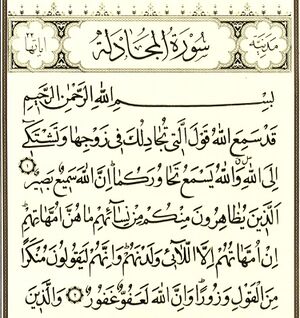 مدنية سورة المجادلة آياتها ٢٢
بسم الله الرحمن الرحيم
قد سمع الله قول التي تجادلك في زوجها وتشتكي
إلى الله والله يسمع تحاوركما إن الله سميع بصير ١
الذين يظاهرون منكم من نسائهم ما هن أمهاتهم
إن أمهاتهم إلا اللائي ولدنهم وإنهم ليقولون منكرا
من القول وزورا وإن الله لعفو غفور ٢ والذين